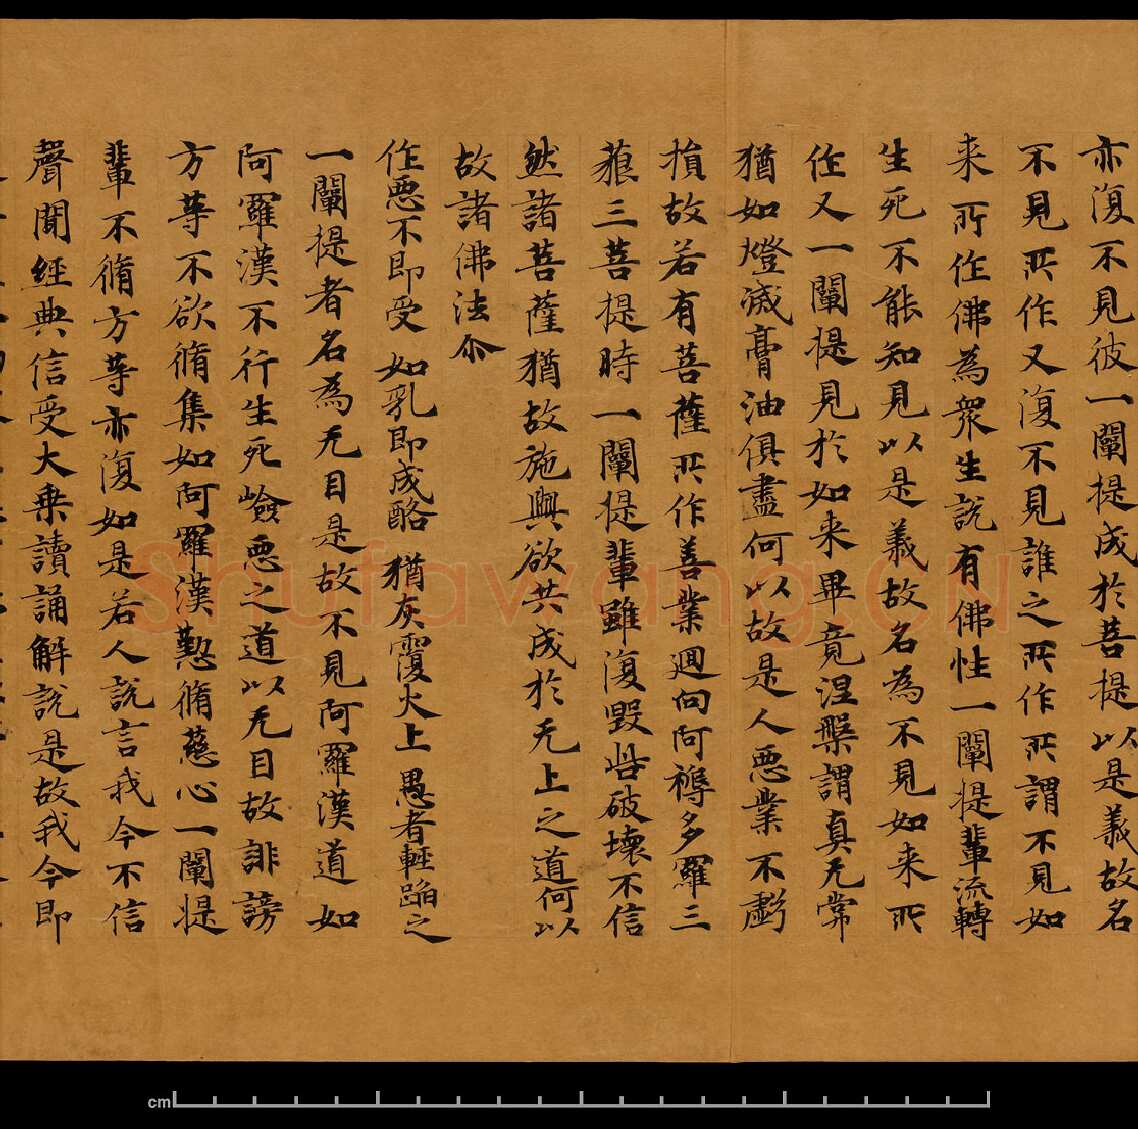 亦復不見彼一闡提成於菩提以是義故名
不見所作又復不見誰之所作所謂不見如
来所作佛為衆生説有佛性一闡提輩流轉
生死不能知見以是義故名為不見如来所
作又一闡提見於如来畢竟涅槃謂真无常
猶如燈滅膏油俱盡何以故是人惡業不虧
損故若有菩薩所作善業迴向阿耨多羅三
藐三菩提時一闡提輩雖復毀呰破壞不信
然諸菩薩猶故施與欲共成於无上之道何以
故諸佛法尒
作惡不即受 如乳即成酪 猶灰覆火上 愚者輕蹈之
一闡提者名為无目是故不見阿羅漢道如
阿羅漢不行生死嶮惡之道以无目故誹謗
方等不欲脩集如阿羅漢懃脩慈心一闡提
輩不脩方等亦復如是若人說言我今不信
聲聞經典信受大乗讀誦解説是故我今即
Shufawang.CN
cm